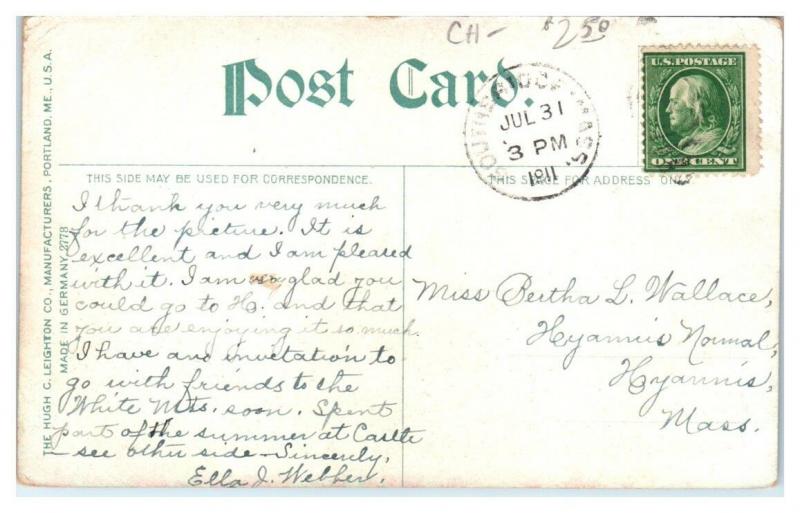 CH- $2.50
Post Card.
SOUTHBRIDGE MASS.
JUL 31
3 PM
1911
U.S. POSTAGE
ONE CENT
THIS SIDE MAY BE USED FOR CORRESPONDENCE.
THIS SPACE FOR ADDRESS ONLY
THE HUGH C. LEIGHTON CO., MANUFACTURERS, PORTLAND, ME., U.S.A.
MADE IN GERMANY 2778
I thank you very much
for the picture. It is
excellent and I am pleased
with it. I am so glad you
could go to H. and that
you are enjoying it so much.
I have an invitation to
go with friends to the
White Mts. soon. Spent
part of the summer at Castle
– see other side – Sincerely,
Ella J. Webber.
Miss Bertha L. Wallace,
Hyannis Normal,
Hyannis,
Mass.